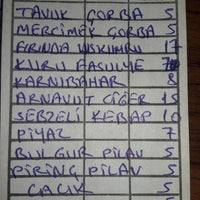 TAVUK ÇORBA 5
MERCİMEK ÇORBA 5
FIRINDA USKUMRU 17
KURU FASULYE 7
KARNIBAHAR 8
ARNAVUT CİĞER 15
SEBZELİ KEBAP 10
PİYAZ 7
BULGUR PİLAV 5
PİRİNÇ PİLAV 5
CACIK 5